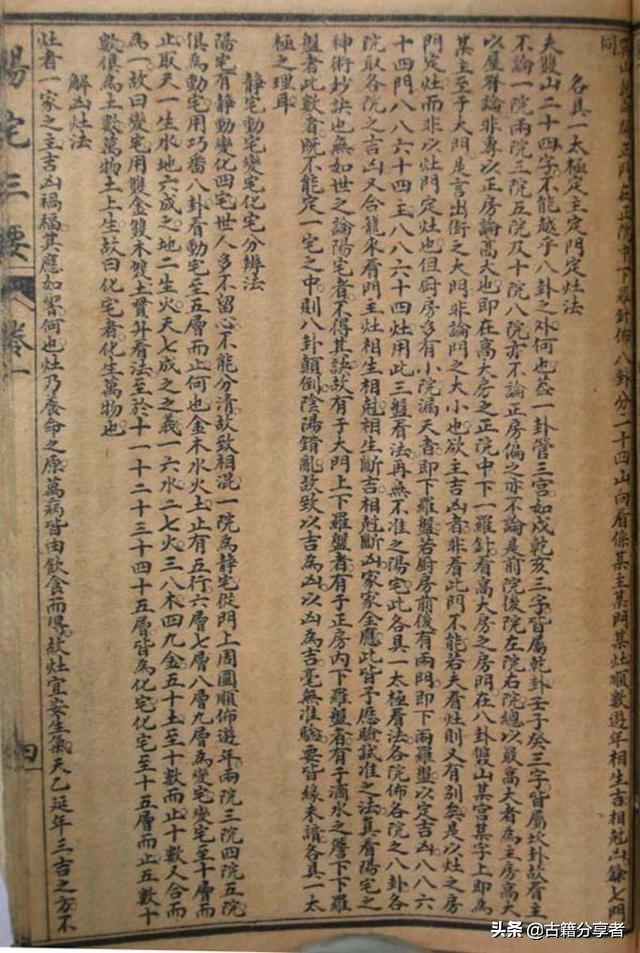 同
各具一太極定主定門定灶法
夫雙山二十四字不能越乎八卦之外何也蓋一卦管三宮如戌乾亥三字皆屬乾卦壬子癸三字皆屬坎卦故看主
不論一院兩院三院五院及十院八院亦不論正房偏之亦不論是前院後院左院右院總以最高大者為主房高大
以屋脊論非專以正房論高大也即在高大房之正院中下一羅針看高大房之房門在八卦雙山某宮某字上即為
某主至于大門是言出街之大門非論門之大小也欲主吉凶者非看此門不能若夫看灶則又有別矣是以灶之房
門定灶而非以灶門定灶也但廚房多有小院漏天者即下羅盤若廚房前後有兩門即下兩羅盤以定吉凶八八六
十四門八八六十四主八八六十四灶用此三盤看法再無不准之陽宅此各具一太極看法各院佈各院之八卦各
院取各院之吉凶又合籠來看門主灶相生相剋相生斷吉相剋斷凶家家全應此皆予應驗試准之法真看陽宅之
神術抄訣也無如世之論陽宅者不得其訣故有于大門上下羅盤者有于正房內下羅盤者有于滴水之簷下下羅
盤者此數者既不能定一宅之中則八卦顛倒陰陽錯亂故致以吉為凶以凶為吉毫無准驗要皆緣未讀各具一太
極之理耳
靜宅動宅變宅化宅分辨法
陽宅有靜動變化四宅世人多不留心不能分清故致相混一院為靜宅從門上周圖順佈遊年兩院三院四院五院
俱為動宅用巧番八卦看動宅至五層而止何也金木水火土止有五行六層七層八層九層為變宅變宅至十層而
止取天一生水地六成之地二生火天七成之之義一六水二七火三八木四九金五十土至十數而止十數又合而
為一故曰變宅用雙金雙木雙土貫井看法至於十一十二十三十四十五層皆為化宅化宅至十五層而止五數十
數俱為土數萬物土上生故曰化宅者化生萬物也
解凶灶法
灶者一家之主吉凶禍福其應如響何也灶乃養命之原萬病皆由飲食而得故灶宜安生氣天乙延年三吉之方不
陽宅三要
卷一
四
头条 @古籍分享者